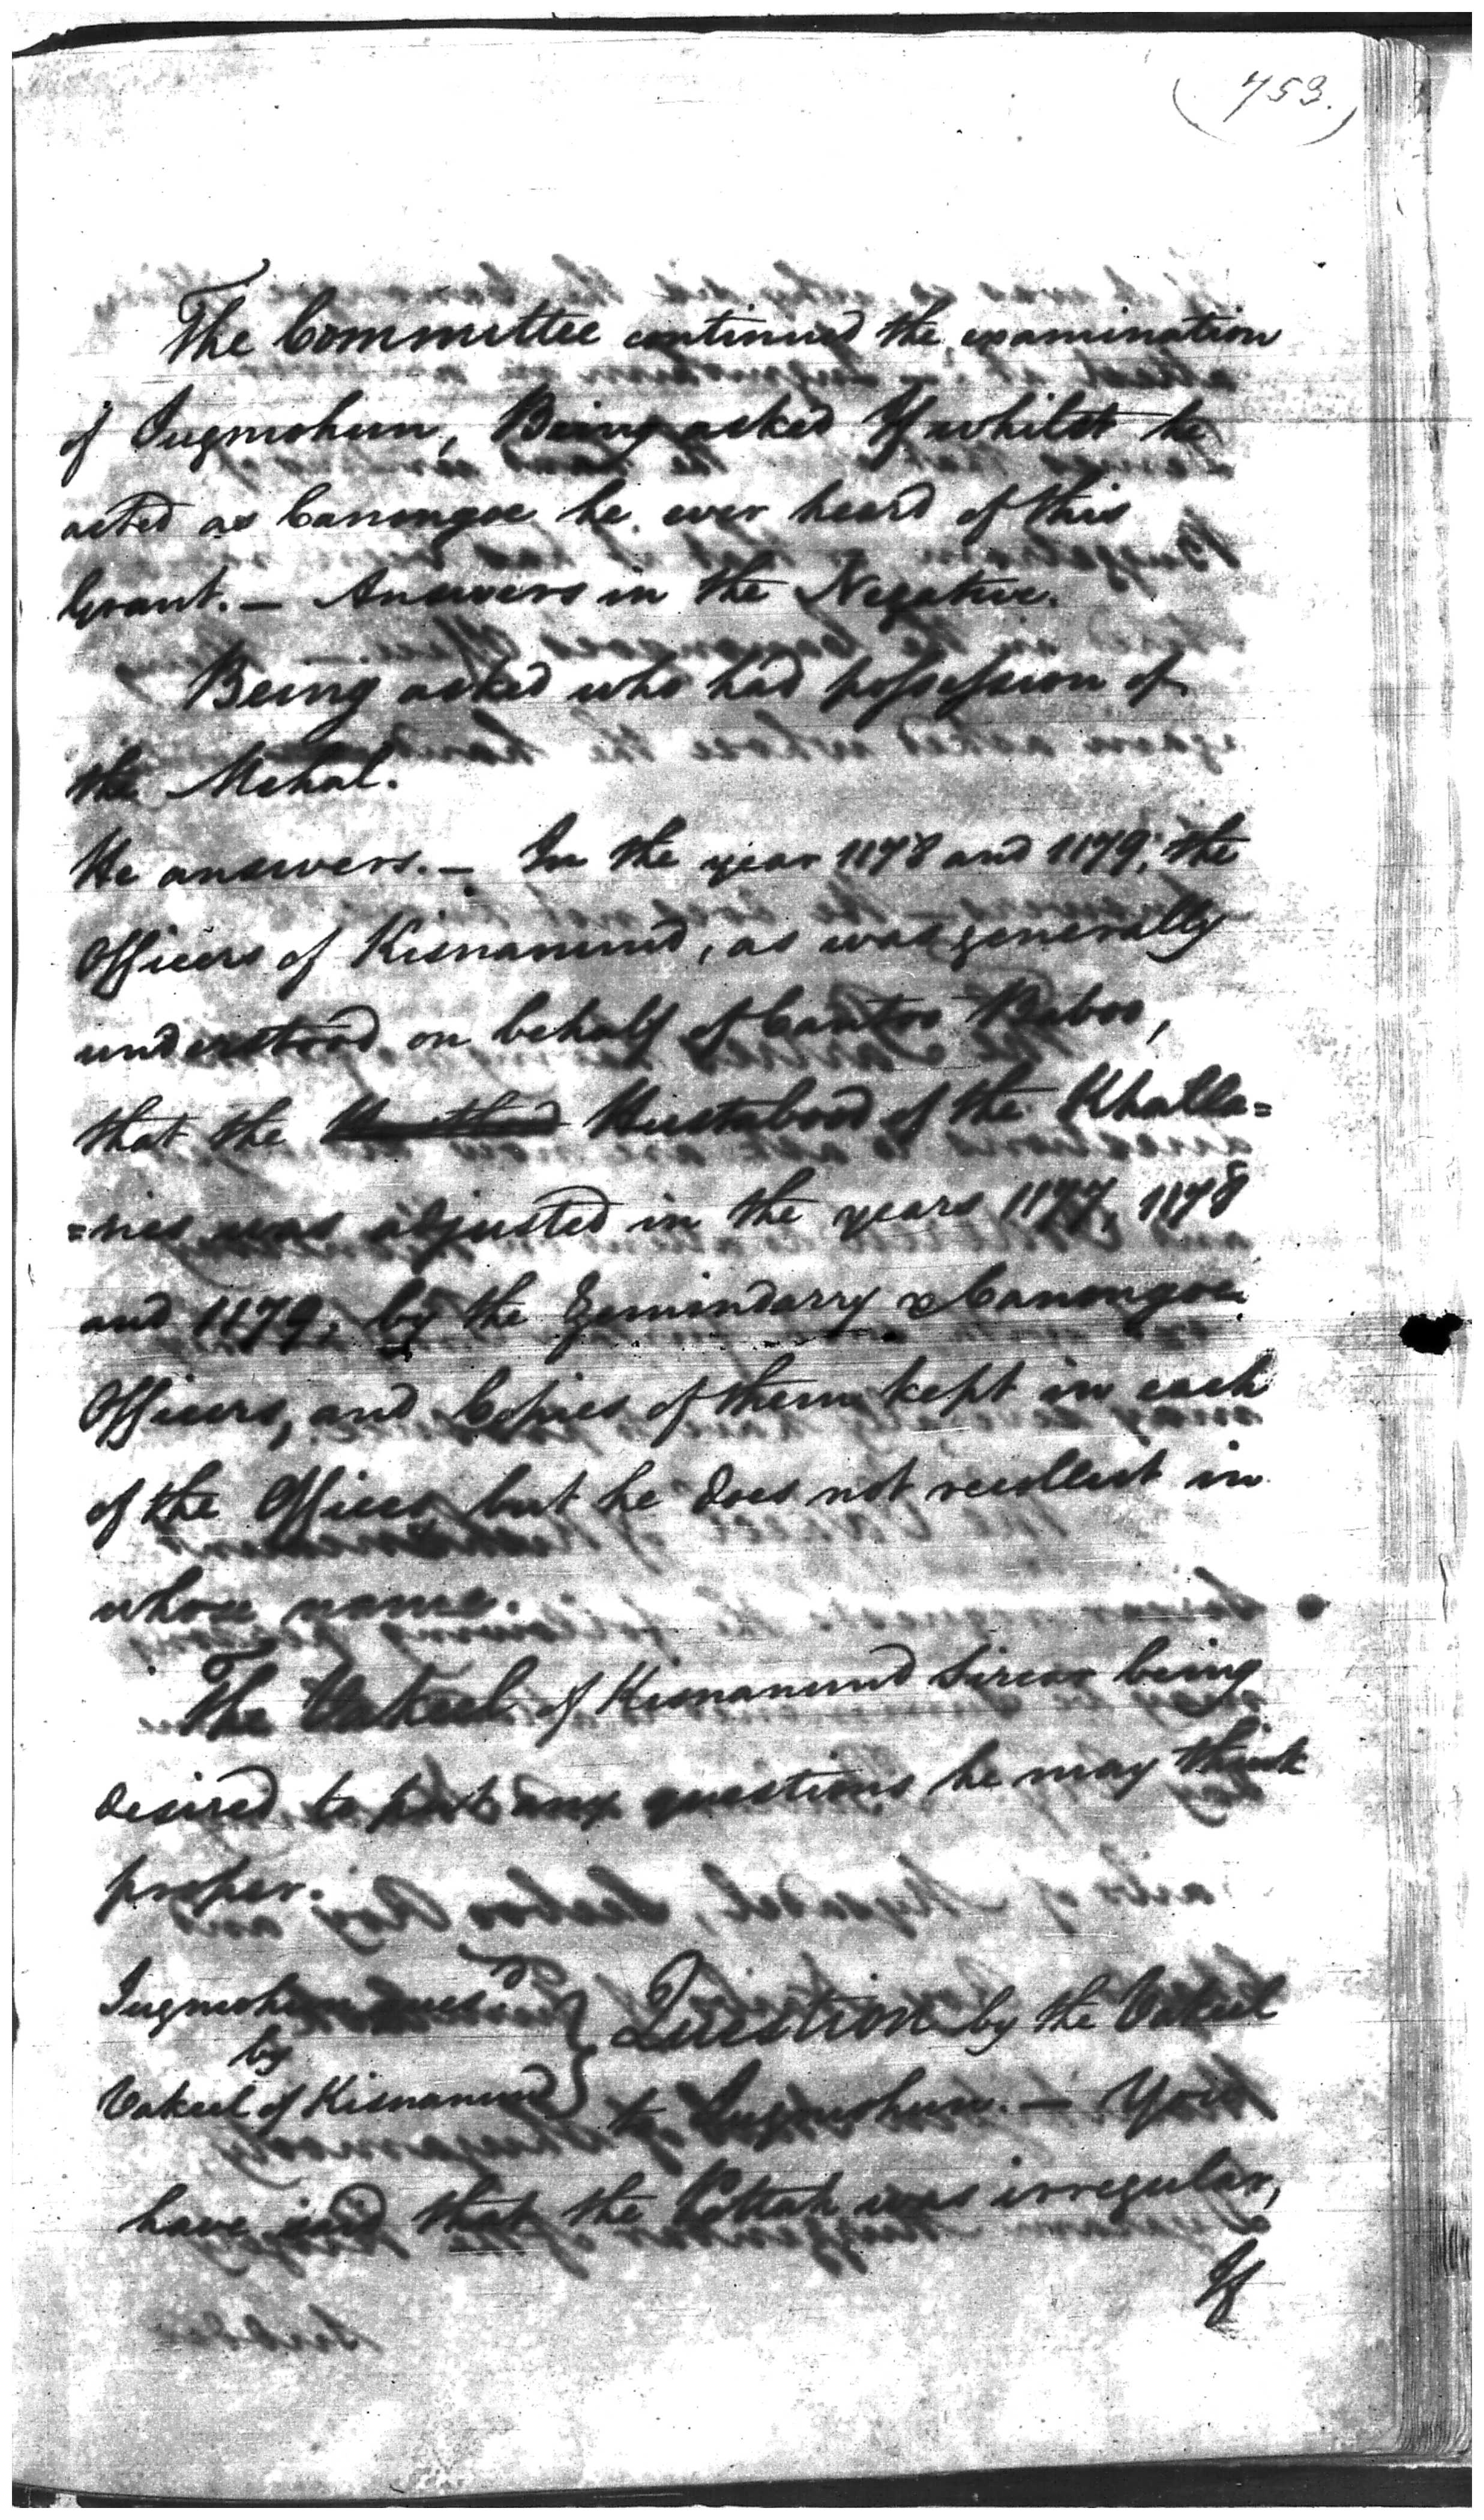 (753.)
The Committee continued the examination
of Jugmohun, Being asked If whilst he
acted as Canongoe he ever heard of this
Grant. — Answers in the Negative.
Being asked who had possession of
the Mehal.
He answers. — In the year 1178 and 1179, the
Officers of Kisnanund, as was generally
understood on behalf of Cantoo Baboo,
that the Hustabood of the Khalla=
=ries was adjusted in the years 1177, 1178
and 1179, by the Zemindarry & Canongoe
Officers, and Copies of them kept in each
of the Offices, but he does not recollect in
whose name.
The Vakeel of Kisnanund Sircar being
desired to put any questions he may think
proper.
Jugmohun ques.d
by
Vakeel of Kisnanund
Question by the Vakeel
to Jugmohun. — You
have said that the Pottah was irregular,
If